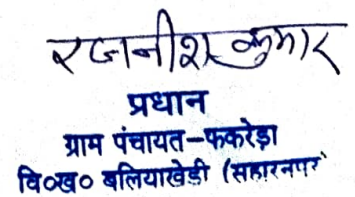 रजनीश कुमार
प्रधान
ग्राम पंचायत-फकरेड़ा
वि०ख० बलियाखेडी (सहारनपुर)